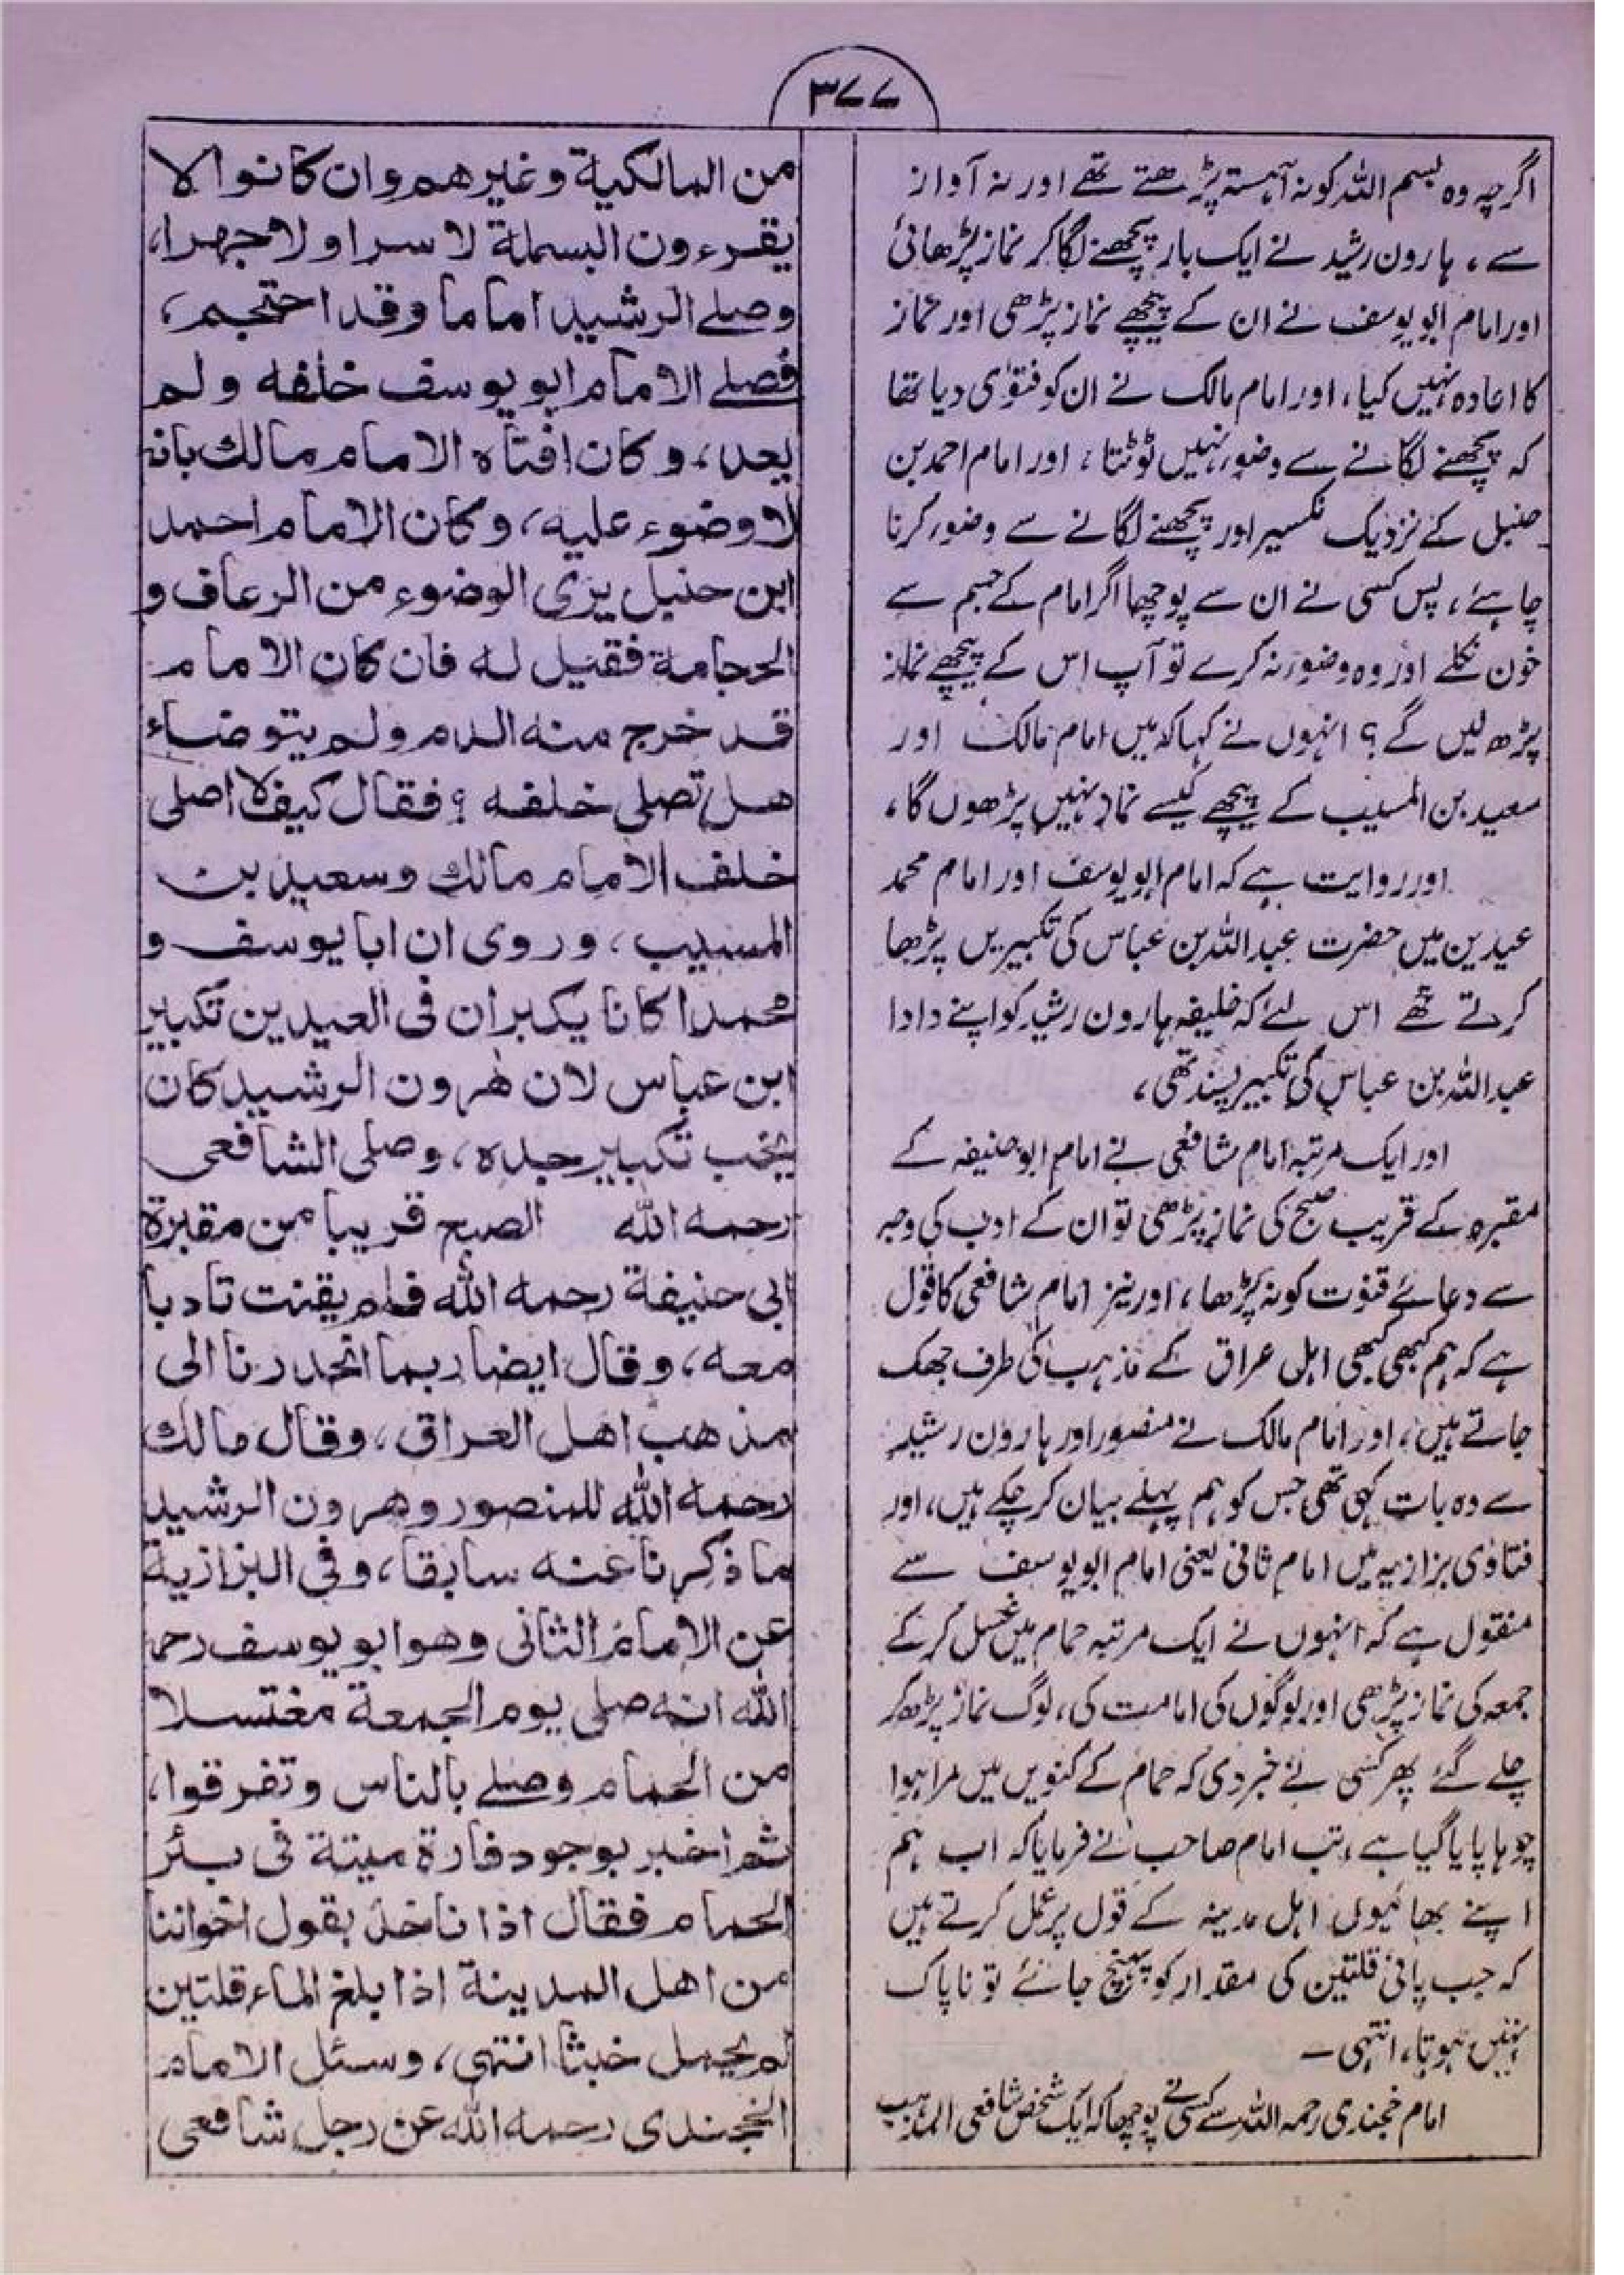 ۳۷۷
اگرچہ وہ بسم اللہ کو نہ آہستہ پڑھتے تھے اور نہ آواز
سے، ہارون رشید نے ایک بار پچھنے لگا کر نماز پڑھائی
اور امام ابو یوسف نے ان کے پیچھے نماز پڑھی اور نماز
کا اعادہ نہیں کیا، اور امام مالک نے ان کو فتوٰی دیا تھا
کہ پچھنے لگانے سے وضور نہیں ٹوٹتا، اور امام احمد بن
حنبل کے نزدیک نکسیر اور پچھنے لگانے سے وضور کرنا
چاہئے، پس کسی نے ان سے پوچھا اگر امام کے جسم سے
خون نکلے اور وہ وضور نہ کرے تو آپ اس کے پیچھے نماز
پڑھ لیں گے؟ انہوں نے کہا کہ میں امام مالک اور
سعید بن المسیب کے پیچھے کیسے نماز نہیں پڑھوں گا،
اور روایت ہے کہ امام ابو یوسف اور امام محمد
عیدین میں حضرت عبد اللہ بن عباس کی تکبیریں پڑھا
کرتے تھے اس لئے کہ خلیفہ ہارون رشید کو اپنے دادا
عبد اللہ بن عباس کی تکبیر پسند تھی،
اور ایک مرتبہ امام شافعی نے امام ابو حنیفہ کے
مقبرہ کے قریب صبح کی نماز پڑھی تو ان کے ادب کی وجہ
سے دعائے قنوت کو نہ پڑھا، اور نیز امام شافعی کا قول
ہے کہ ہم کبھی کبھی اہل عراق کے مذہب کی طرف جھک
جاتے ہیں، اور امام مالک نے منصور اور ہارون رشید
سے وہ بات کہی تھی جس کو ہم پہلے بیان کر چکے ہیں، اور
فتاوٰی بزازیہ میں امام ثانی یعنی امام ابو یوسف سے
منقول ہے کہ انہوں نے ایک مرتبہ حمام میں غسل کر کے
جمعہ کی نماز پڑھی اور لوگوں کی امامت کی، لوگ نماز پڑھ کر
چلے گئے پھر کسی نے خبر دی کہ حمام کے کنویں میں مرا ہوا
چوہا پایا گیا ہے، تب امام صاحب نے فرمایا کہ اب ہم
اپنے بھائیوں اہل مدینہ کے قول پر عمل کرتے ہیں
کہ جب پانی قلتین کی مقدار کو پہنچ جائے تو ناپاک
نہیں ہوتا، انتہی ۔
امام خجندی رحمہ اللہ سے کسی نے پوچھا کہ ایک شخص شافعی المذہب
من المالكية وغيرهم وان كانوا لا
يقرءون البسملة لا سرا ولا جهرا،
وصلے الرشيد اماما وقد احتجم،
فصلے الامام ابو يوسف خلفه ولم
يعد، وكان افتاه الامام مالك بانه
لا وضوء عليه، وكان الامام احمد
ابن حنبل يرى الوضوء من الرعاف و
الحجامة فقيل له فان كان الامام
قد خرج منه الدم ولم يتوضاء
هل تصلی خلفه ؟ فقال كيف لا اصلی
خلف الامام مالك وسعيد بن
المسيب، وروی ان ابا يوسف و
محمدا كانا يكبران فی العيدين تكبير
ابن عباس لان هٰرون الرشيد كان
يحب تكبير جده، وصلی الشافعی
رحمه الله الصبح قريبا من مقبرة
ابی حنيفة رحمه الله فلم يقنت تادبا
معه، وقال ايضا ربما انحدرنا الی
مذهب اهل العراق، وقال مالك
رحمه الله للمنصور وهرون الرشيد
ما ذكرنا عنه سابقا، وفی البزازية
عن الامام الثانی وهو ابو يوسف رحمه
الله انه صلی يوم الجمعة مغتسلا
من الحمام وصلے بالناس وتفرقوا،
ثم اخبر بوجود فارة ميتة فی بئر
الحمام فقال اذا ناخذ بقول اخواننا
من اهل المدينة اذا بلغ الماء قلتين
لم يحمل خبثا انتهی، وسئل الامام
الخجندی رحمه الله عن رجل شافعی